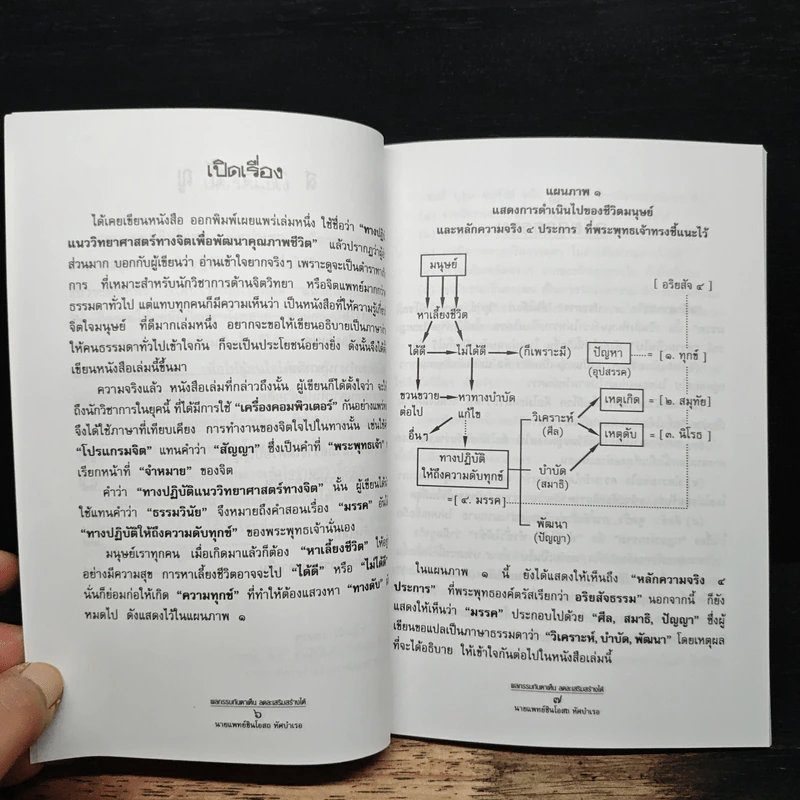 เปิดเรื่อง
ได้เคยเขียนหนังสือ ออกพิมพ์เผยแพร่เล่มหนึ่ง ใช้ชื่อว่า "ทางปฏิบัติ
แนววิทยาศาสตร์ทางจิตเพื่อพัฒนาคุณภาพชีวิต" แล้วปรากฏว่าผู้
ส่วนมาก บอกกับผู้เขียนว่า อ่านเข้าใจยากจริงๆ เพราะดูจะเป็นตำราทาง
การ ที่เหมาะสำหรับนักวิชาการด้านจิตวิทยา หรือจิตแพทย์มากกว่า
ธรรมดาทั่วไป แต่แทบทุกคนก็มีความเห็นว่า เป็นหนังสือที่ให้ความรู้เกี่ยว
จิตใจมนุษย์ ที่ดีมากเล่มหนึ่ง อยากจะขอให้เขียนอธิบายเป็นภาษา
ให้คนธรรมดาทั่วไปเข้าใจกัน ก็จะเป็นประโยชน์อย่างยิ่ง ดังนั้นจึงได้
เขียนหนังสือเล่มนี้ขึ้นมา
ความจริงแล้ว หนังสือเล่มที่กล่าวถึงนั้น ผู้เขียนก็ได้ตั้งใจว่า
ถึงนักวิชาการในยุคนี้ ที่ได้มีการใช้ "เครื่องคอมพิวเตอร์" กันอย่างแพร่
จึงได้ใช้ภาษาที่เทียบเคียง การทำงานของจิตใจไปในทางนั้น เช่นใช้
"โปรแกรมจิต" แทนคำว่า "สัญญา" ซึ่งเป็นคำที่ "พระพุทธเจ้า"
เรียกหน้าที่ "จำหมาย" ของจิต
คำว่า "ทางปฏิบัติแนววิทยาศาสตร์ทางจิต" นั้น ผู้เขียนได้
ใช้แทนคำว่า "ธรรมวินัย" จึงหมายถึงคำสอนเรื่อง "มรรค"
"ทางปฏิบัติให้ถึงความดับทุกข์" ของพระพุทธเจ้านั่นเอง
มนุษย์เราทุกคน เมื่อเกิดมาแล้วก็ต้อง "หาเลี้ยงชีวิต" ให้
อย่างมีความสุข การหาเลี้ยงชีวิตอาจจะไป "ได้ดี" หรือ "ไม่ได้ดี"
นั่นก็ย่อมก่อให้เกิด "ความทุกข์" ที่ทำให้ต้องแสวงหา "ทางดับ"
หมดไป ดังแสดงไว้ในแผนภาพ ๑
ผลกรรมทันตาเห็น ลดละเสริมสร้างได้
๖
นายแพทย์ชินโอสถ หัศบำเรอ
แผนภาพ ๑
แสดงการดำเนินไปของชีวิตมนุษย์
และหลักความจริง ๔ ประการ ที่พระพุทธเจ้าทรงชี้แนะไว้
มนุษย์
[ อริยสัจ ๔ ]
หาเลี้ยงชีวิต
ได้ดี ไม่ได้ดี (ก็เพราะมี) ปัญหา = [๑. ทุกข์ ]
(อุปสรรค)
ขวนขวาย หาทางบำบัด เหตุเกิด = [๒. สมุทัย]
ต่อไป แก้ไข วิเคราะห์
(ศีล)
อื่นๆ เหตุดับ = [๓. นิโรธ ]
ทางปฏิบัติ
ให้ถึงความดับทุกข์ บำบัด
(สมาธิ)
=[ ๔. มรรค ]
พัฒนา
(ปัญญา)
ในแผนภาพ ๑ นี้ ยังได้แสดงให้เห็นถึง "หลักความจริง ๔
ประการ" ที่พระพุทธองค์ตรัสเรียกว่า อริยสัจธรรม" นอกจากนี้ ก็ยัง
แสดงให้เห็นว่า "มรรค" ประกอบไปด้วย "ศีล, สมาธิ, ปัญญา" ซึ่งผู้
เขียนขอแปลเป็นภาษาธรรมดาว่า "วิเคราะห์, บำบัด, พัฒนา" โดยเหตุผล
ที่จะได้อธิบาย ให้เข้าใจกันต่อไปในหนังสือเล่มนี้
ผลกรรมทันตาเห็น ลดละเสริมสร้างได้
๗
นายแพทย์ชินโอสถ หัศบำเรอ